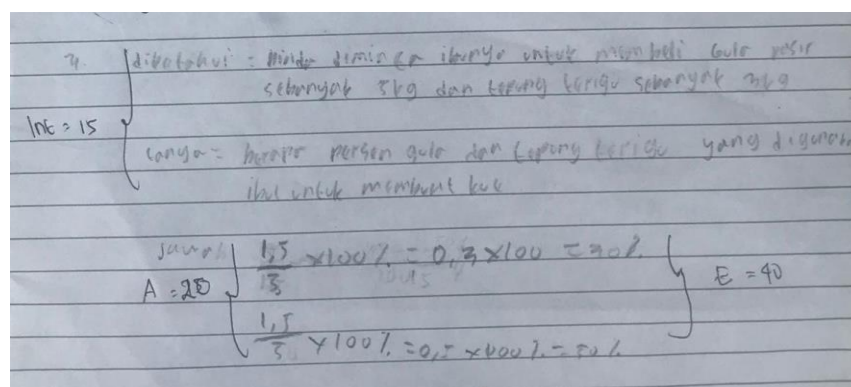 diketahui = minda diminta ibunya untuk membeli Gula pasir
sebanyak 5kg dan tepung terigu sebanyak 3kg
Int = 15
tanya = berapa persen gula dan tepung terigu yang digunakan
ibu untuk membuat kue
Jawab
1,5/5 x100% = 0,3 x100 = 30%
A = 20
E = 40
1,5/3 x 100% = 0,5 x 100% = 50%